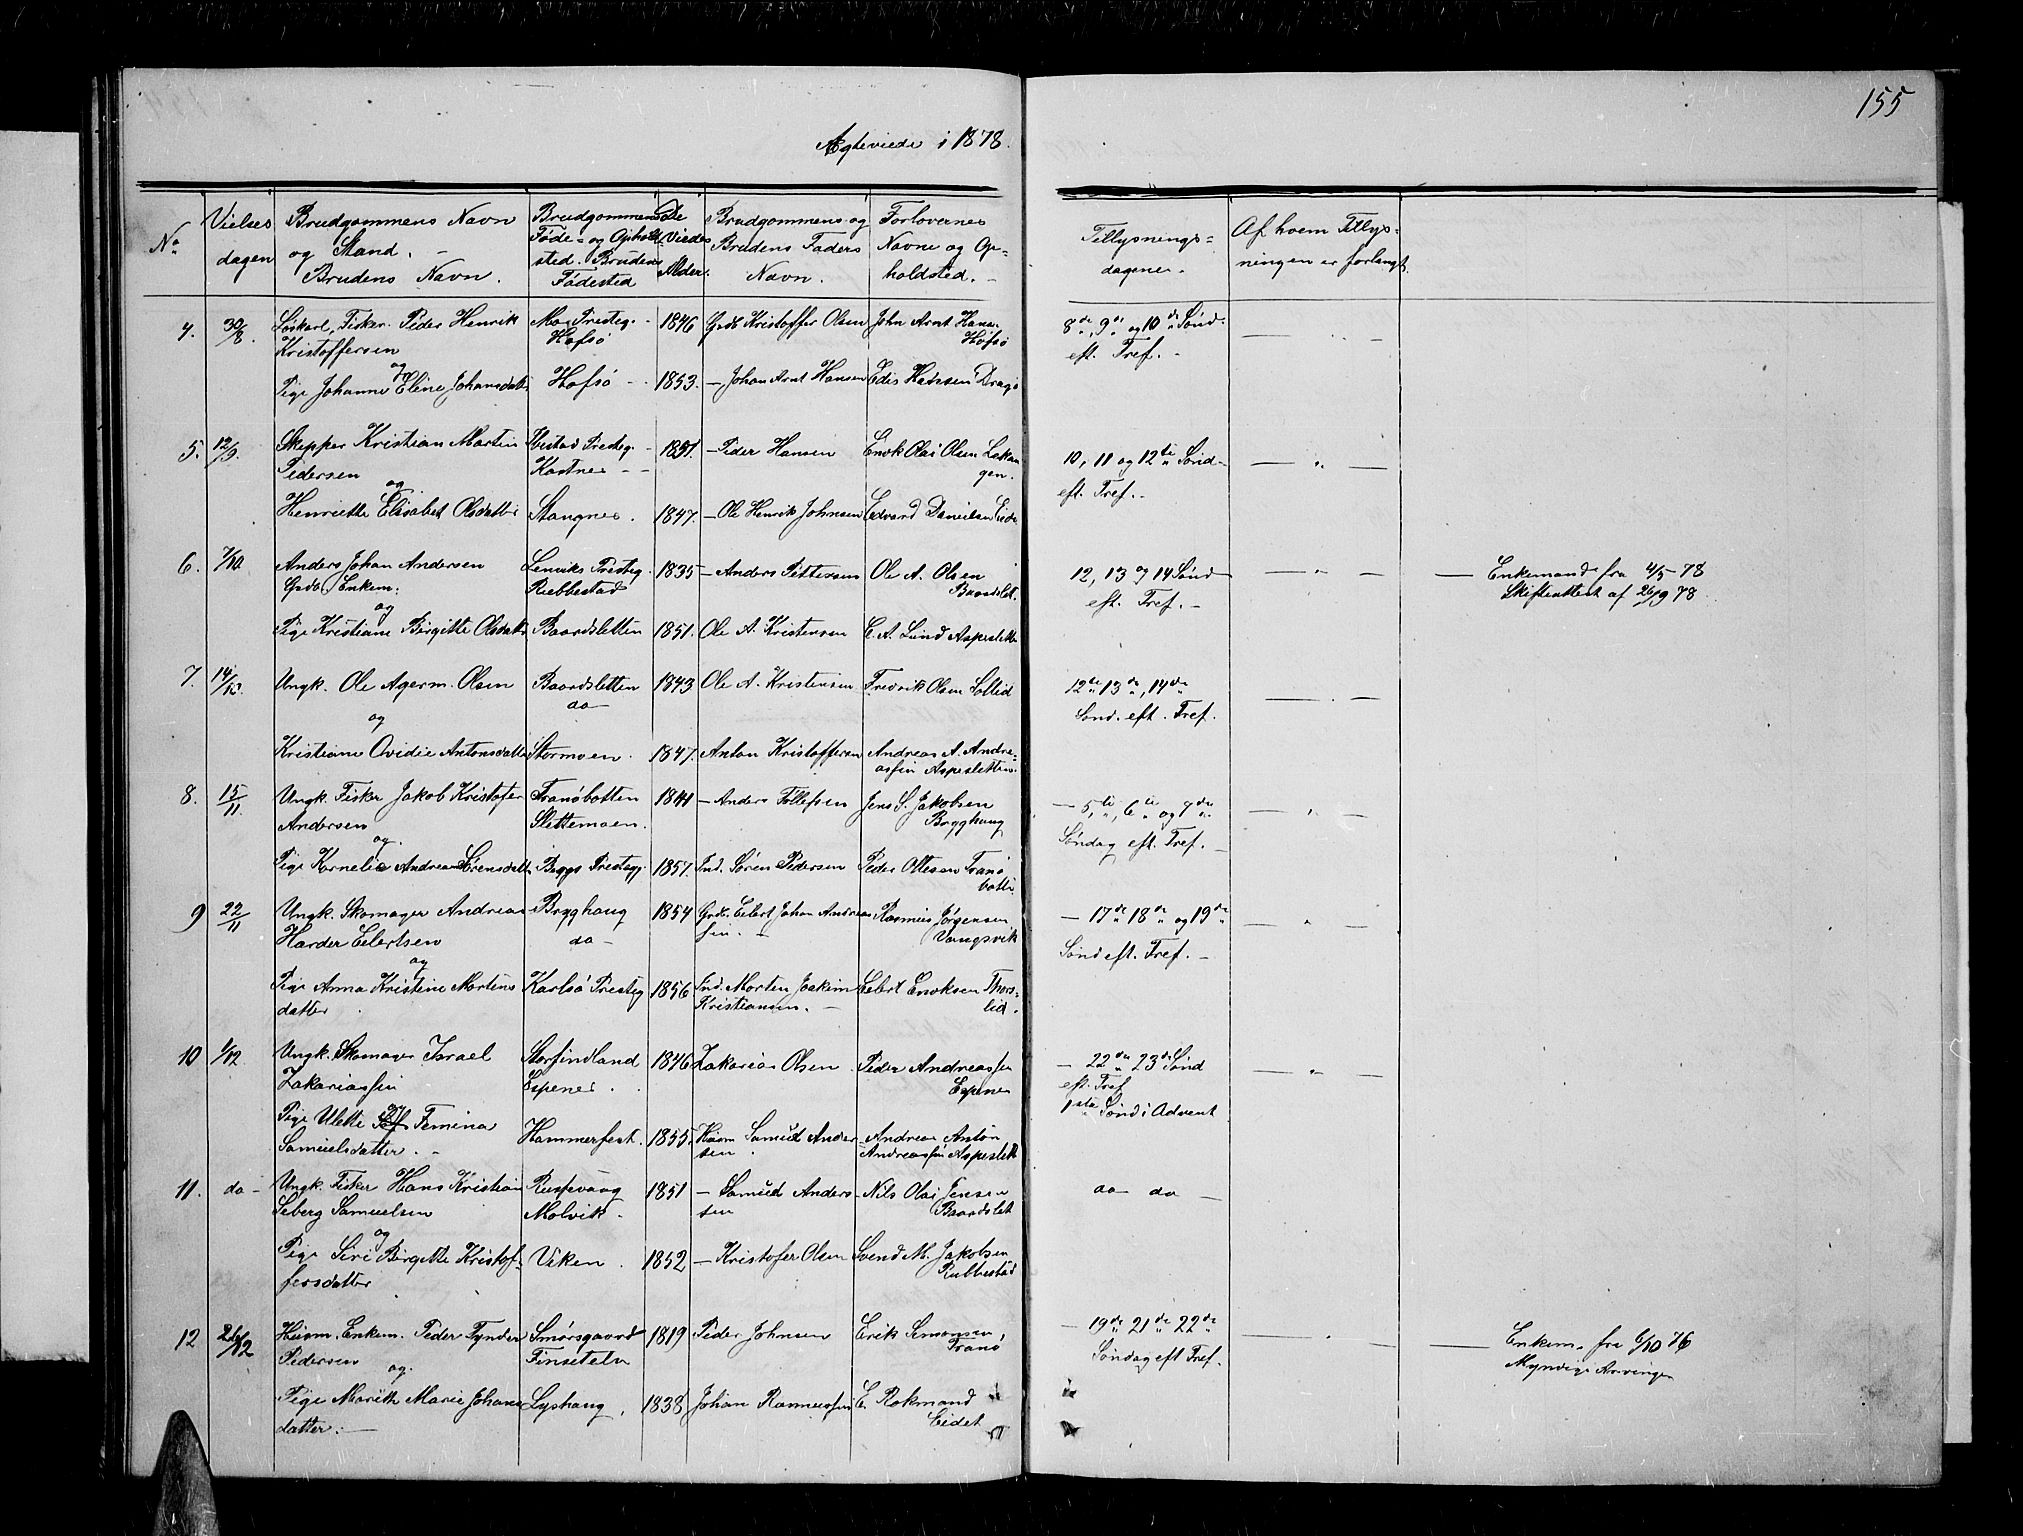 155
Ægteviede i 1878.
No
Vielses
dagen
Brudgommens Navn
og Stand. –
Brudens Navn.
Brudgommens
Føde- og Ophold
sted. Brudens
Fødested
De
Viedes
Alder.
Brudgommens og
Brudens Faders
Navn.
Forlovernes
Navne og Op-
holdsted. –
Tillysnings-
dagene.
Af hvem Tillys-
ningen er forlangt
4. 30/8. Løskarl, Fisker Peder Henrik
Kristoffersen
og
Pige Johanne Eline Johansdatt.
Mo Presteg. -
Hofsø
Hofsø
1846
1853.
Grdb. Kristoffer Olsen
– Johan Arnt Hansen
John Arnt Hans.
Hofsø
Edis Hansen Dragø
8de, 9de og 10de Sønd.
eft. Tref. –
5. 12/9. Skipper Kristian Martin
Pedersen
og
Henriette Elisabet Olsdatter
Ibestad Presteg. –
Kastnes – –
Stangnes.
1851.
1847.
– Peder Hansen
– Ole Henrik Johnsen
Enok Olai Olsen Lekan
gen.
Edvard Danielsen Eide
10, 11 og 12te Sønd-
eft. Tref. –
6. 7/10 Anders Johan Andersen
Grdb. Enkem:
og
Pige Kristiane Birgitte Olsdatt
Lenviks Presteg.
Rubbestad
Baardsletten
1835
1851.
– Anders Pettersen
Ole A. Kristensen
Ole A. Olsen
Baardslet.
E. A. Lund Aspesletten
12, 13 og 14 Sønd
eft. Tref. –
Enkemand fra 4/5 78
Skifteattest af 26/9 78
7. 14/10. Ungk. Ole Agerm. Olsen
og
Kristiane Ovidie Antonsdatter
Baardsletten
do
Stormoen.
1843
1847.
Ole A. Kristensen
Anton Kristoffersen
Fredrik Olsen Sollid
Andreas A. Andre-
assen Aspesletten
12te 13de, 14de
Sønd. eft. Tref.
8. 15/11. Ungk. Fisker Jakob Kristofer
Andersen
og.
Pige Kornelie Andrea Sørensdatt
Tranøbotten
Slettemoen.
Bergs Presteg.
1841
1857.
– Anders Tollefsen
Ind. Søren Pedersen
Jens S. Jakobsen
Brygghaug
Peder Ottesen Tranø
botn.
– 5te, 6te og 7de
Søndag eft. Tref. –
9 22/11 Ungk. Skomager Andreas
Harder Eilertsen
og
Pige Anna Kristine Martens
datter.
Brygghaug
do –
Karlsø Presteg
1854
1856
Grdb. Eilert Johan Andreas
sen. –
Ind. Morten Joakim
Kristiansen. –
Rasmus Jørgensen
Vangsvik
Eilert Enoksen Thors-
lid.
– 17de 18de og 19de
Sønd eft. Tref. –
10 1/12. Ungk. Skomager Israel
Zakariassen
Pige Ulette Femina
Samuelsdatter. –
Storfindland
Espenes.
Hammerfest.
1846
1855.
Zakarias Olsen
Husm Samuel Ander
sen.
Peder Andreassen
Espenes
Andreas Anton
Andreassen Aspeslett
– 22de 23de Sønd
eft. Tref
1ste Sønd i Advent
11. do – Ungk. Fisker Hans Kristian
Seberg Samuelsen
og
Pige Siri Birgitte Kristof-
fersdatter
Russevaag
Molvik.
Viken.
1851
1852
– Samuel Anders
sen
– Kristofer Olsen
Nils Olai Jensen
Baardslet
Svend M. Jakobsen
Rubbestad
do do –
12 26/12 Husm. Enkem. Peder Tynder
Pedersen
og
Pige Marith Marie Johans
datter. –
Smørsgaard
Finsæteln
Lyshaug.
1819
1838
Peder Johnsen
Johan Rasmussen
Erik Simonsen,
Tranø
E. Rokmand
Eidet
– 19de 21de 22de
Søndag eft Tref.
Enkem. fra 6/10 76
Myndige Arvinger